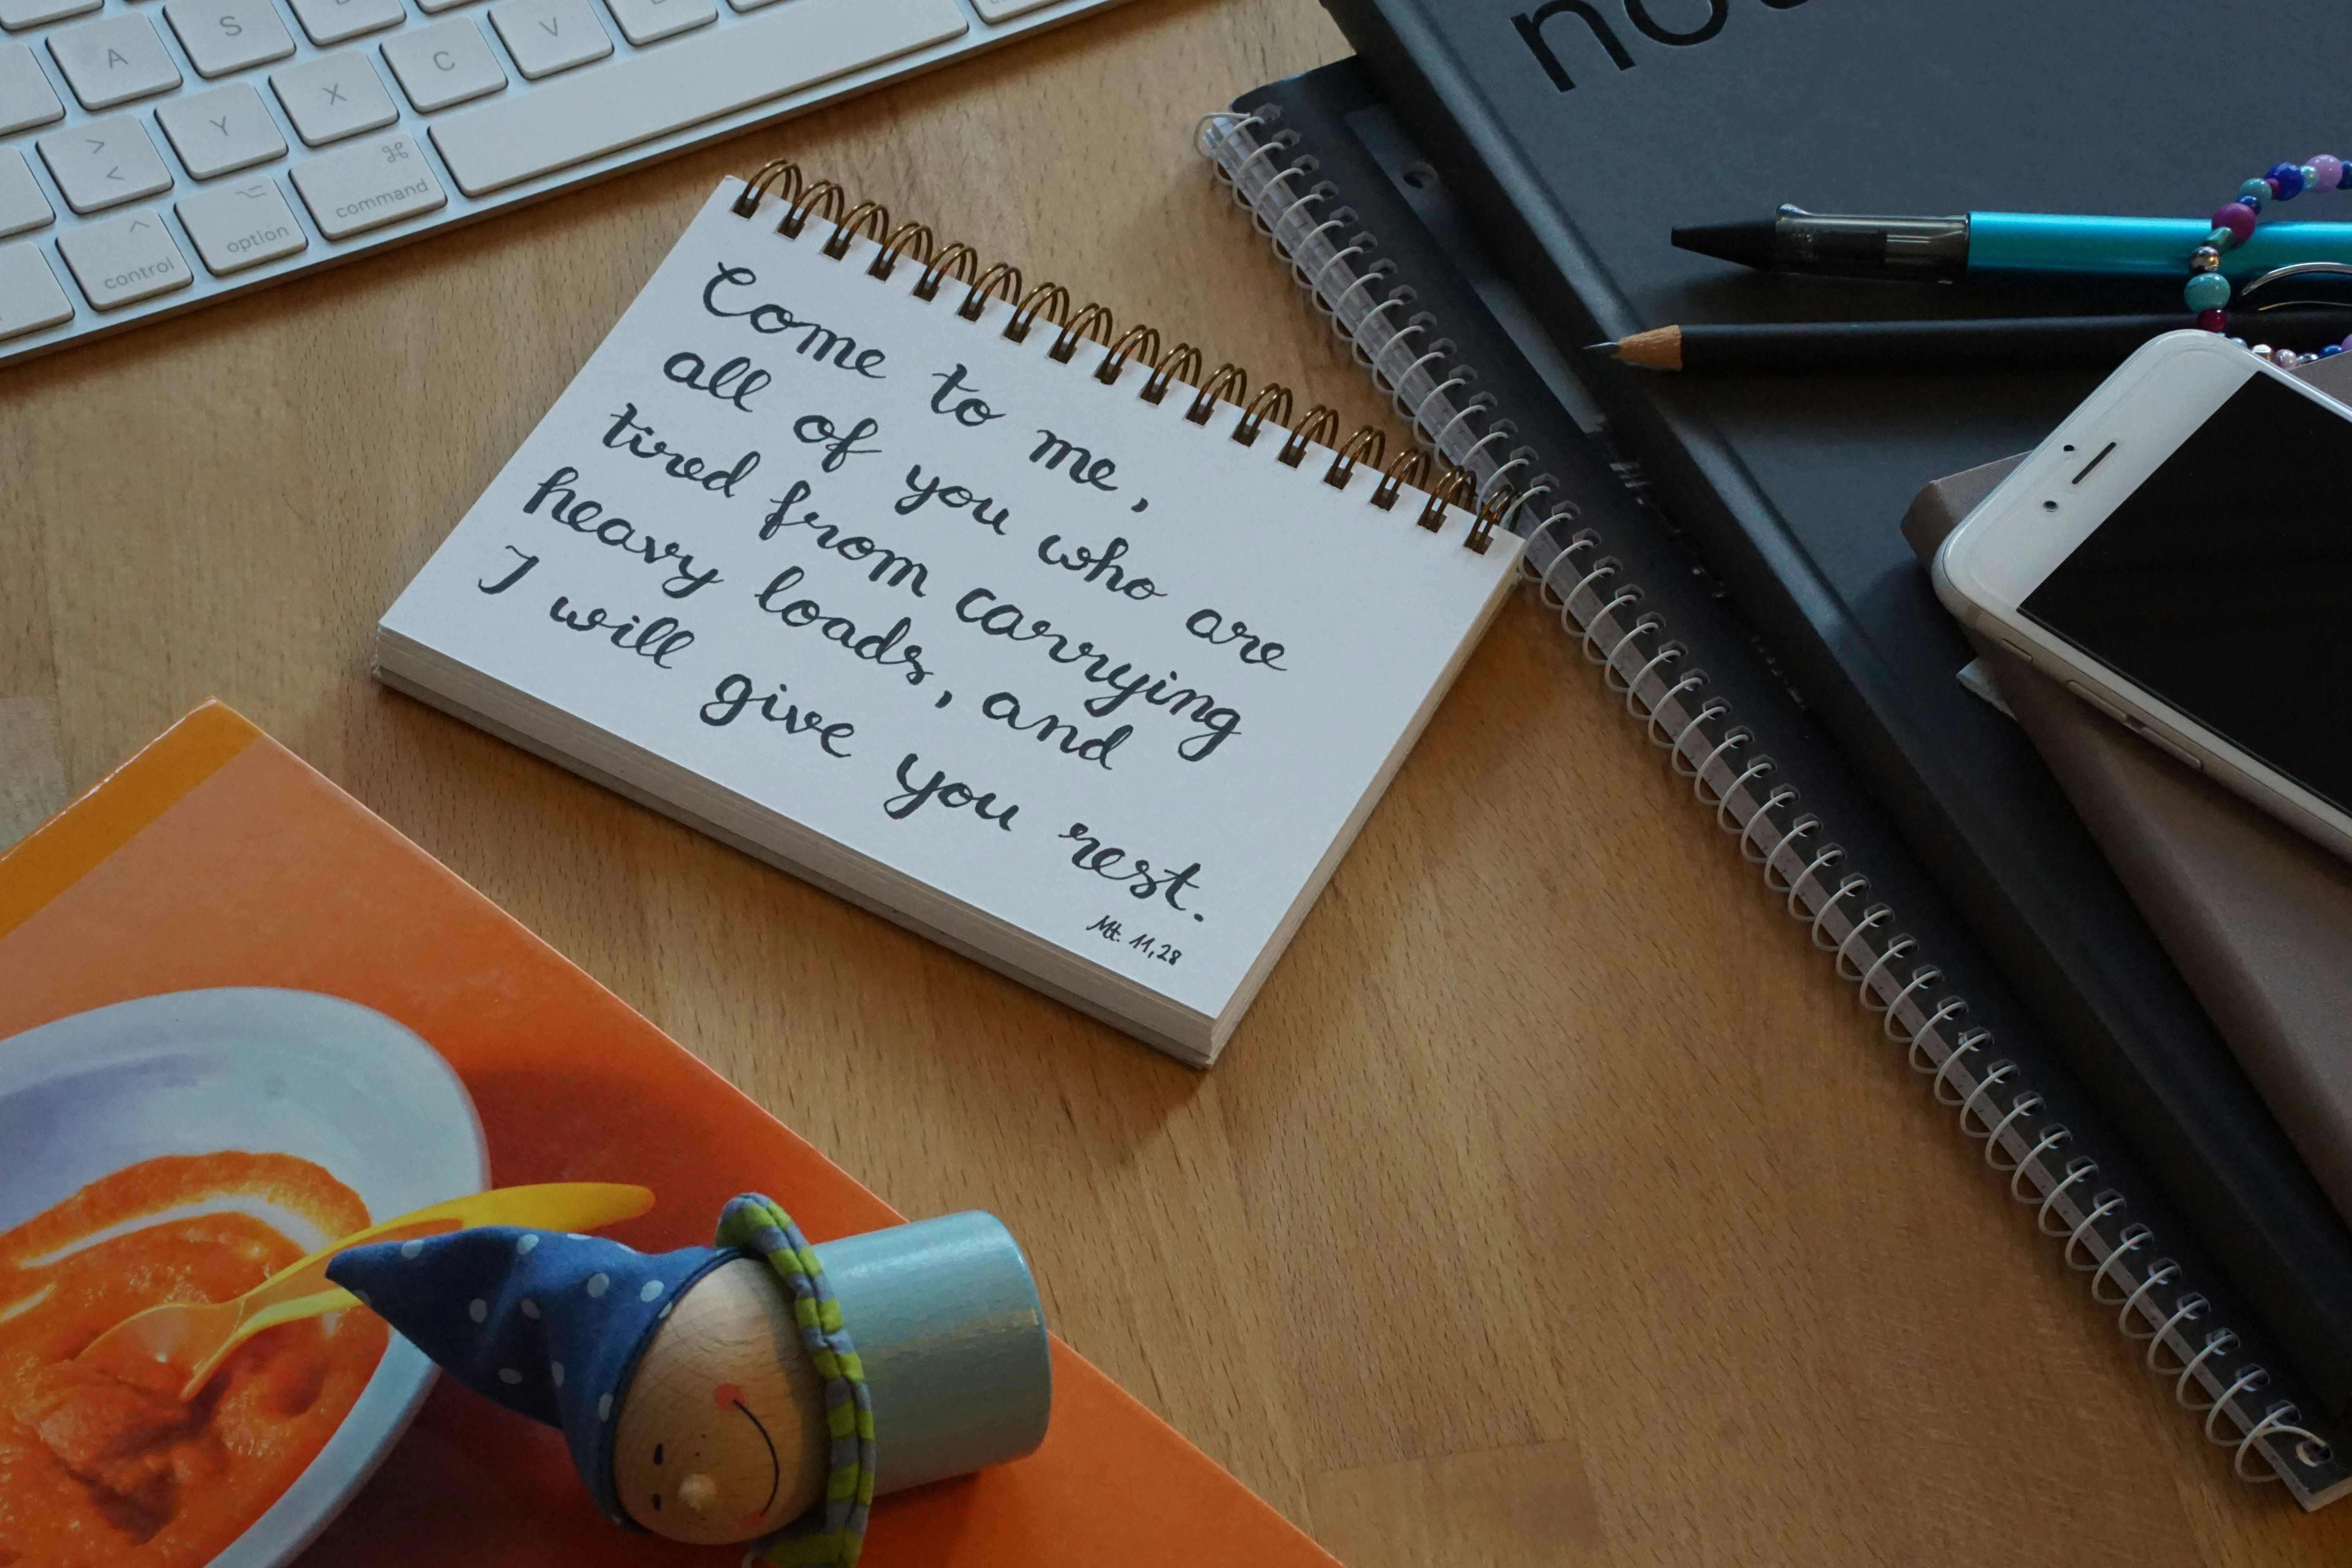 A S
Y X C V
>
<
⌘
command
⌥
option
^
control
Come to me,
all of you who are
tired from carrying
heavy loads, and
I will give you rest.
Mt. 11,28